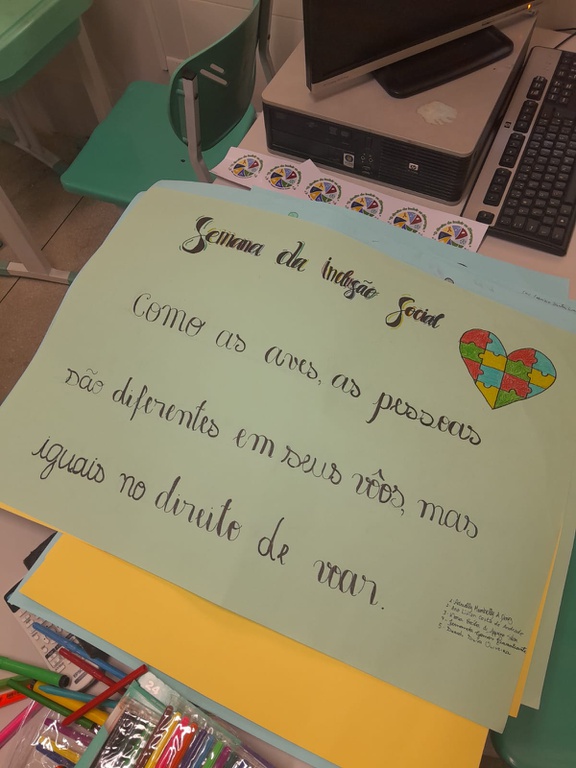 Semana da Inclusão Social
Como as aves, as pessoas
são diferentes em seus vôos, mas
iguais no direito de voar.
24
hp